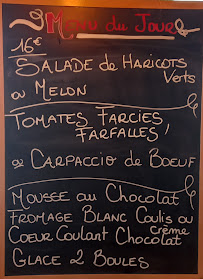 Menu du Jour
16€
SALADE de HARICOTS
Verts
ou MELON
TOMATES FARCIES
FARFALLES !
ou CARPACCIO de BOEUF
MOUSSE au CHOCOLAT
FROMAGE BLANC COULIS ou
Crème
COEUR COULANT CHOCOLAT
GLACE 2 BOULES